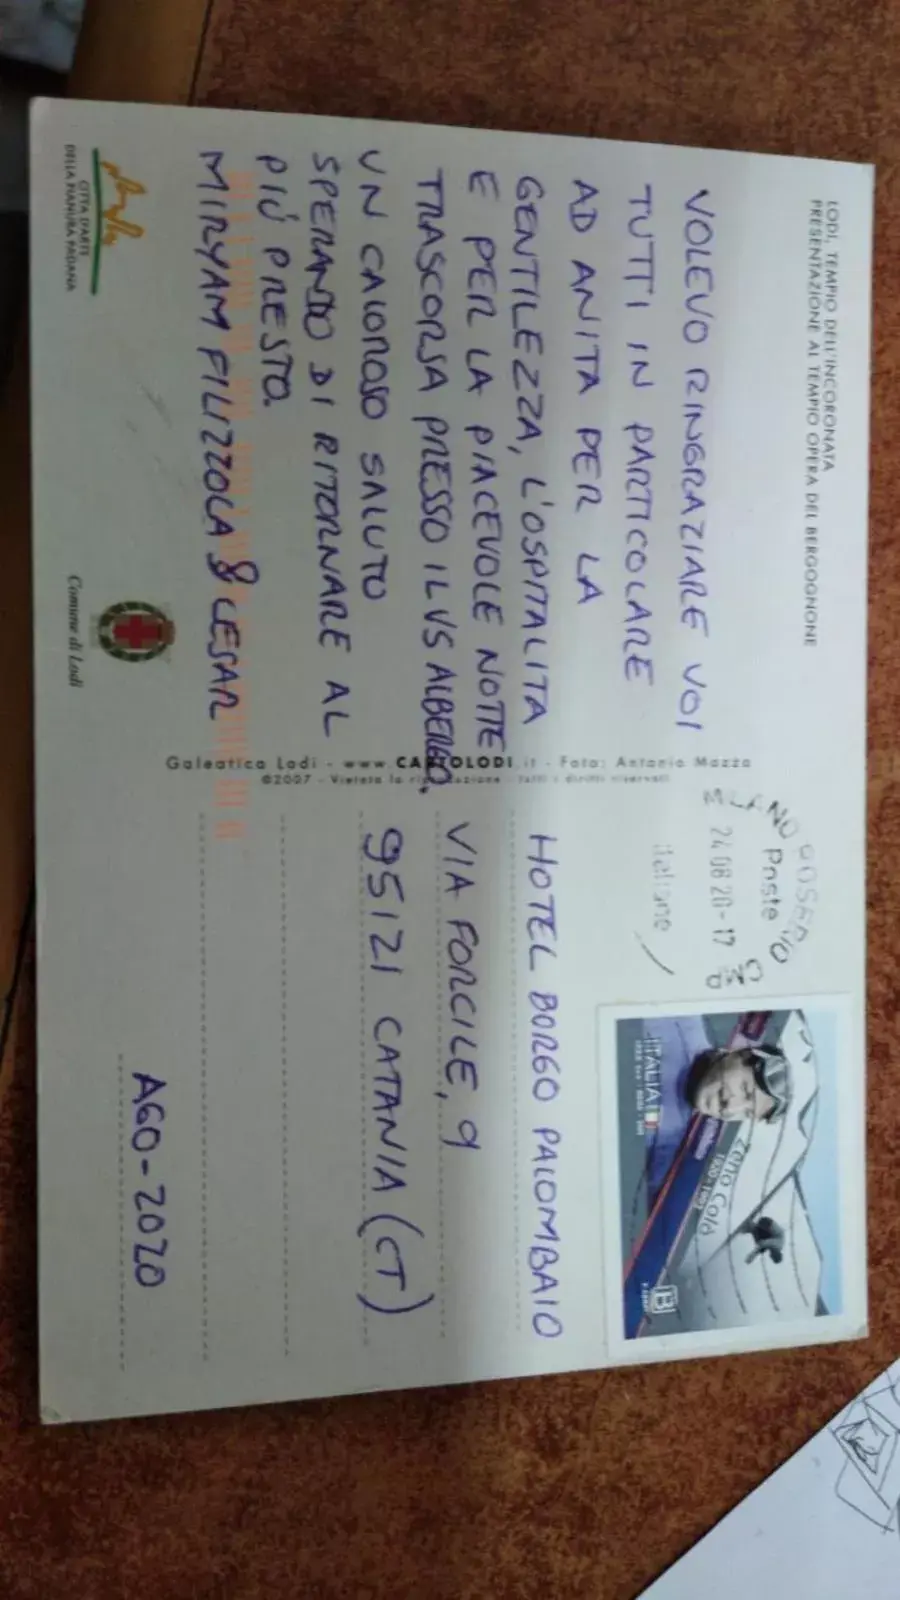 LODI, TEMPIO DELL'INCORONATA
PRESENTAZIONE AL TEMPIO OPERA DEL BERGOGNONE
VOLEVO RINGRAZIARE VOI
TUTTI IN PARTICOLARE
AD ANITA PER LA
GENTILEZZA, L'OSPITALITA
E PER LA PIACEVOLE NOTTE
TRASCORSA PRESSO IL VS ALBERGO.
UN CALOROSO SALUTO
SPERANDO DI RITORNARE AL
PIÚ PRESTO.
MIRYAM FILIZZOLA & CESAR
CITTÀ D'ARTE
DELLA PIANURA PADANA
Comune di Lodi
Galeatica Lodi - www.CARTOLODI.it - Foto: Antonio Mazza
©2007 - Vietata la riproduzione - tutti i diritti riservati
MILANO ROSERIO
Poste
24 08 20-17
italiane
CMP
ITALIA
Zeno Colò
1920-1993
B
HOTEL BORGO PALOMBAIO
VIA FORCILE, 9
95121 CATANIA (CT)
AGO-2020